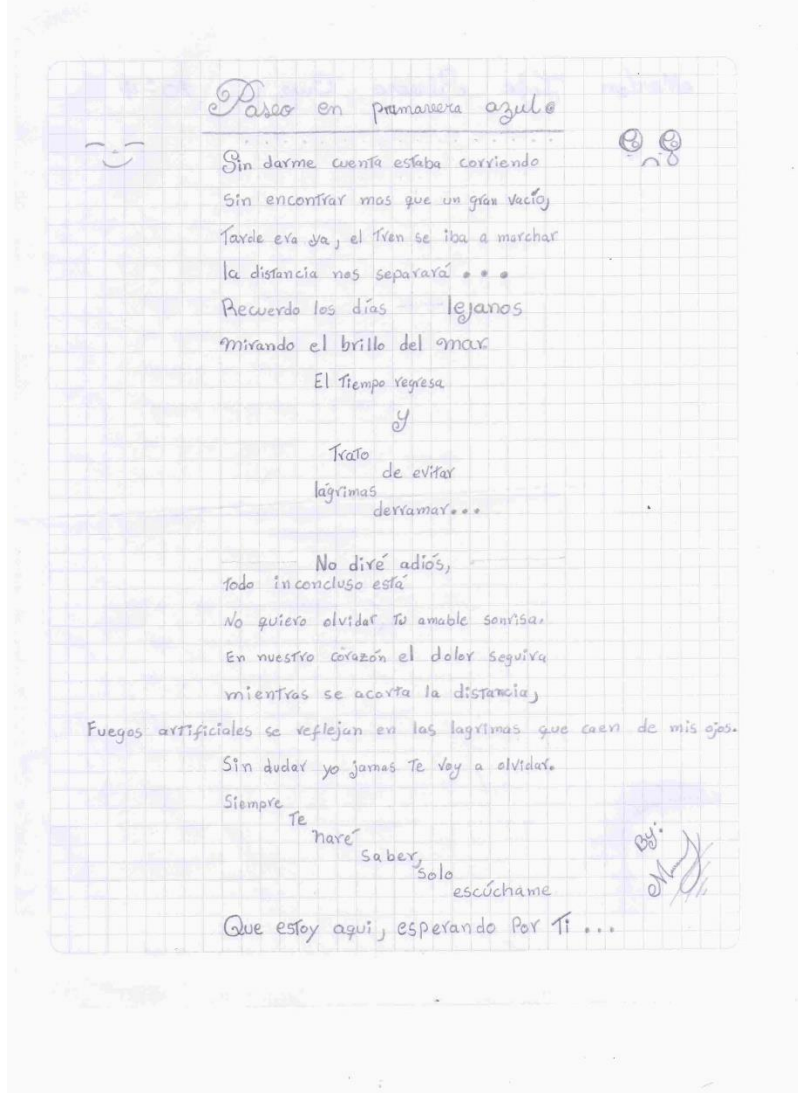 Paseo en primaveera azul
Sin darme cuenta estaba corriendo
Sin encontrar mas que un gran vacío,
Tarde era ya, el Tren se iba a marchar
la distancia nos separará ...
Recuerdo los días lejanos
mirando el brillo del mar
El Tiempo regresa
y
Trato
de evitar
lágrimas
derramar...
No diré adiós,
Todo inconcluso está
No quiero olvidar Tu amable sonrisa.
En nuestro corazón el dolor seguira
mientras se acorta la distancia,
Fuegos artificiales se reflejan en las lagrimas que caen de mis ojos.
Sin dudar yo jamas Te voy a olvidar.
Siempre
Te
haré
saber,
solo
escúchame
By:
Que estoy aqui, esperando Por Ti ...